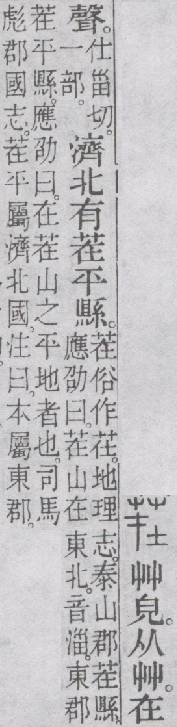 茬艸皃。从艸。在
聲。仕甾切。一部。濟北有茬平縣。茬俗作茌。地理志。泰山郡茬縣。應劭曰。茬山在東北。音淄。東郡
茬平縣。應劭曰。在茬山之平地者也。司馬
彪郡國志。茬平屬濟北國。注曰。本屬東郡。